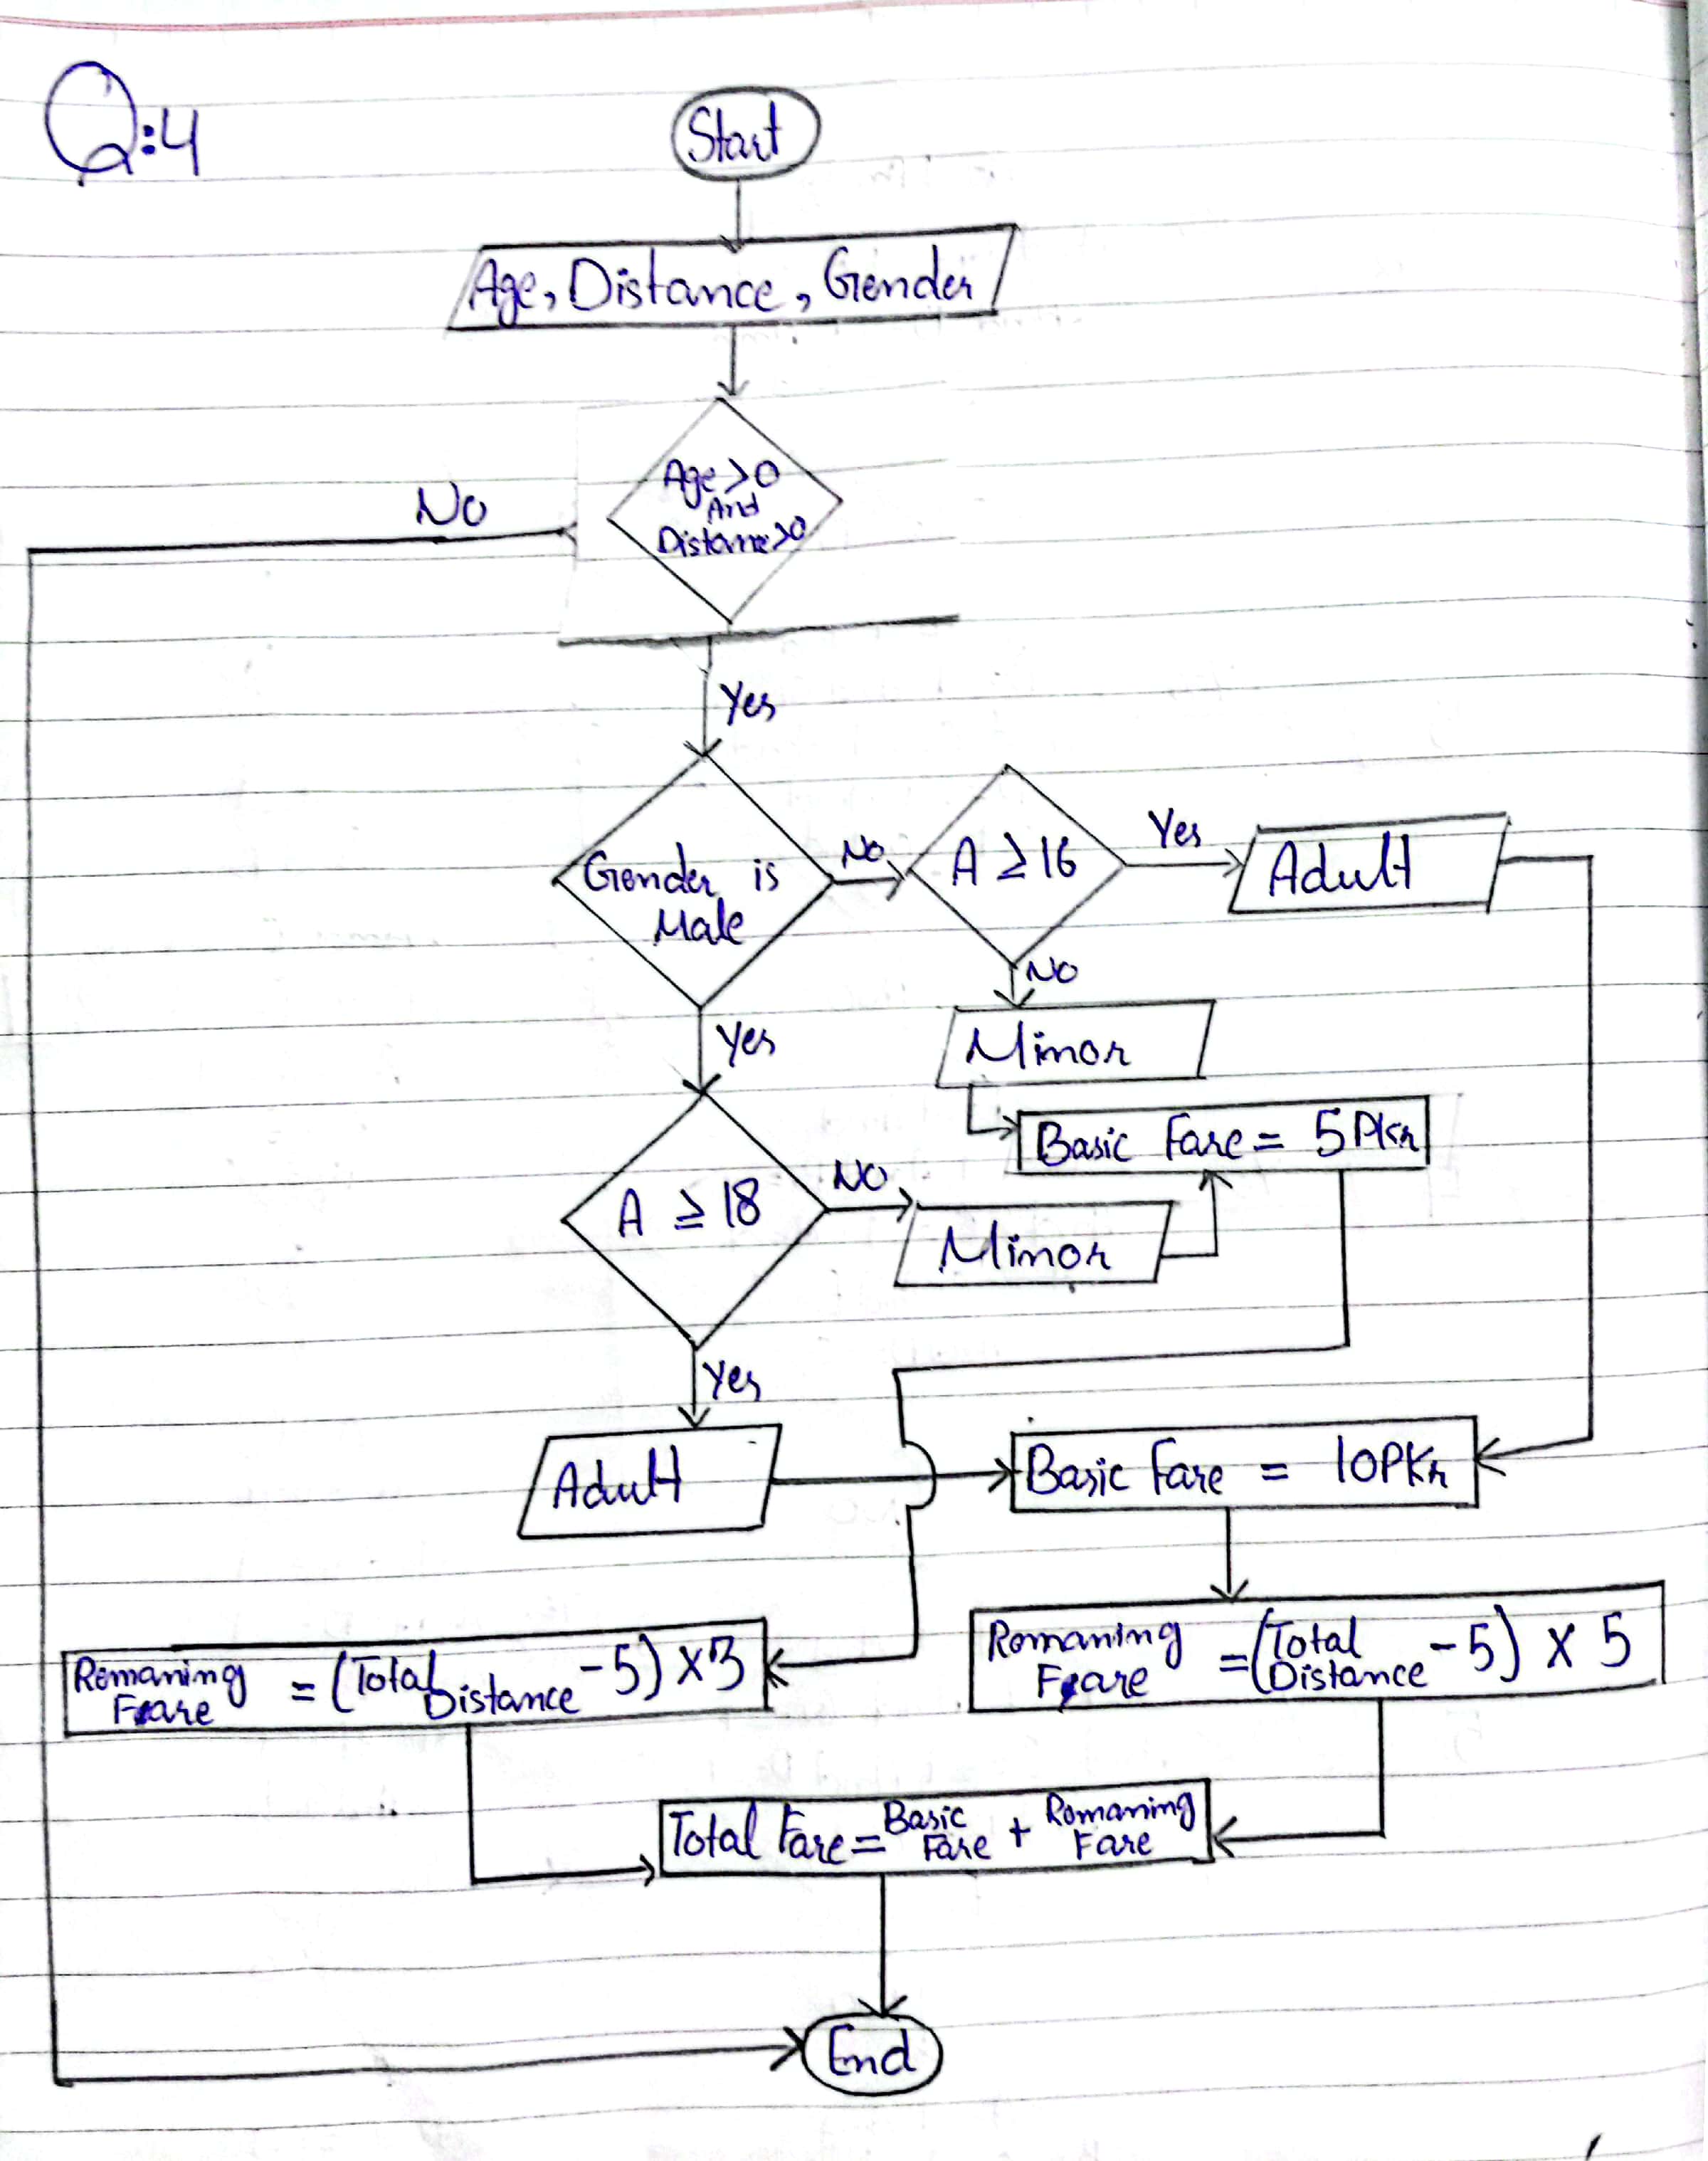 Q:4
Start
Age, Distance, Gender
Age >0
And
Distance >0
No
Yes
Gender is
Male
No
A ≥ 16
Yes
Adult
No
Minor
Yes
Basic Fare = 5 Pkr
A ≥ 18
NO
Minor
Yes
Adult
Basic Fare = 10PKr
Remaning
Fare
= (Total
Distance
-5) x 3
Remaning
Fare
= (Total
Distance
-5) x 5
Total Fare = Basic
Fare
+ Remaning
Fare
End